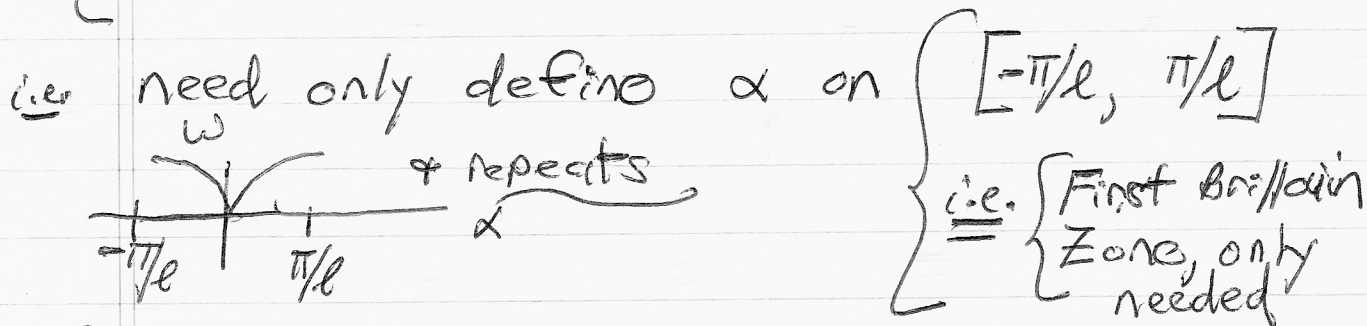 i.e. need only define α on [-π/ℓ, π/ℓ]
ω
& repeats
α
-π/ℓ π/ℓ
i.e. First Brillouin
Zone, only
needed